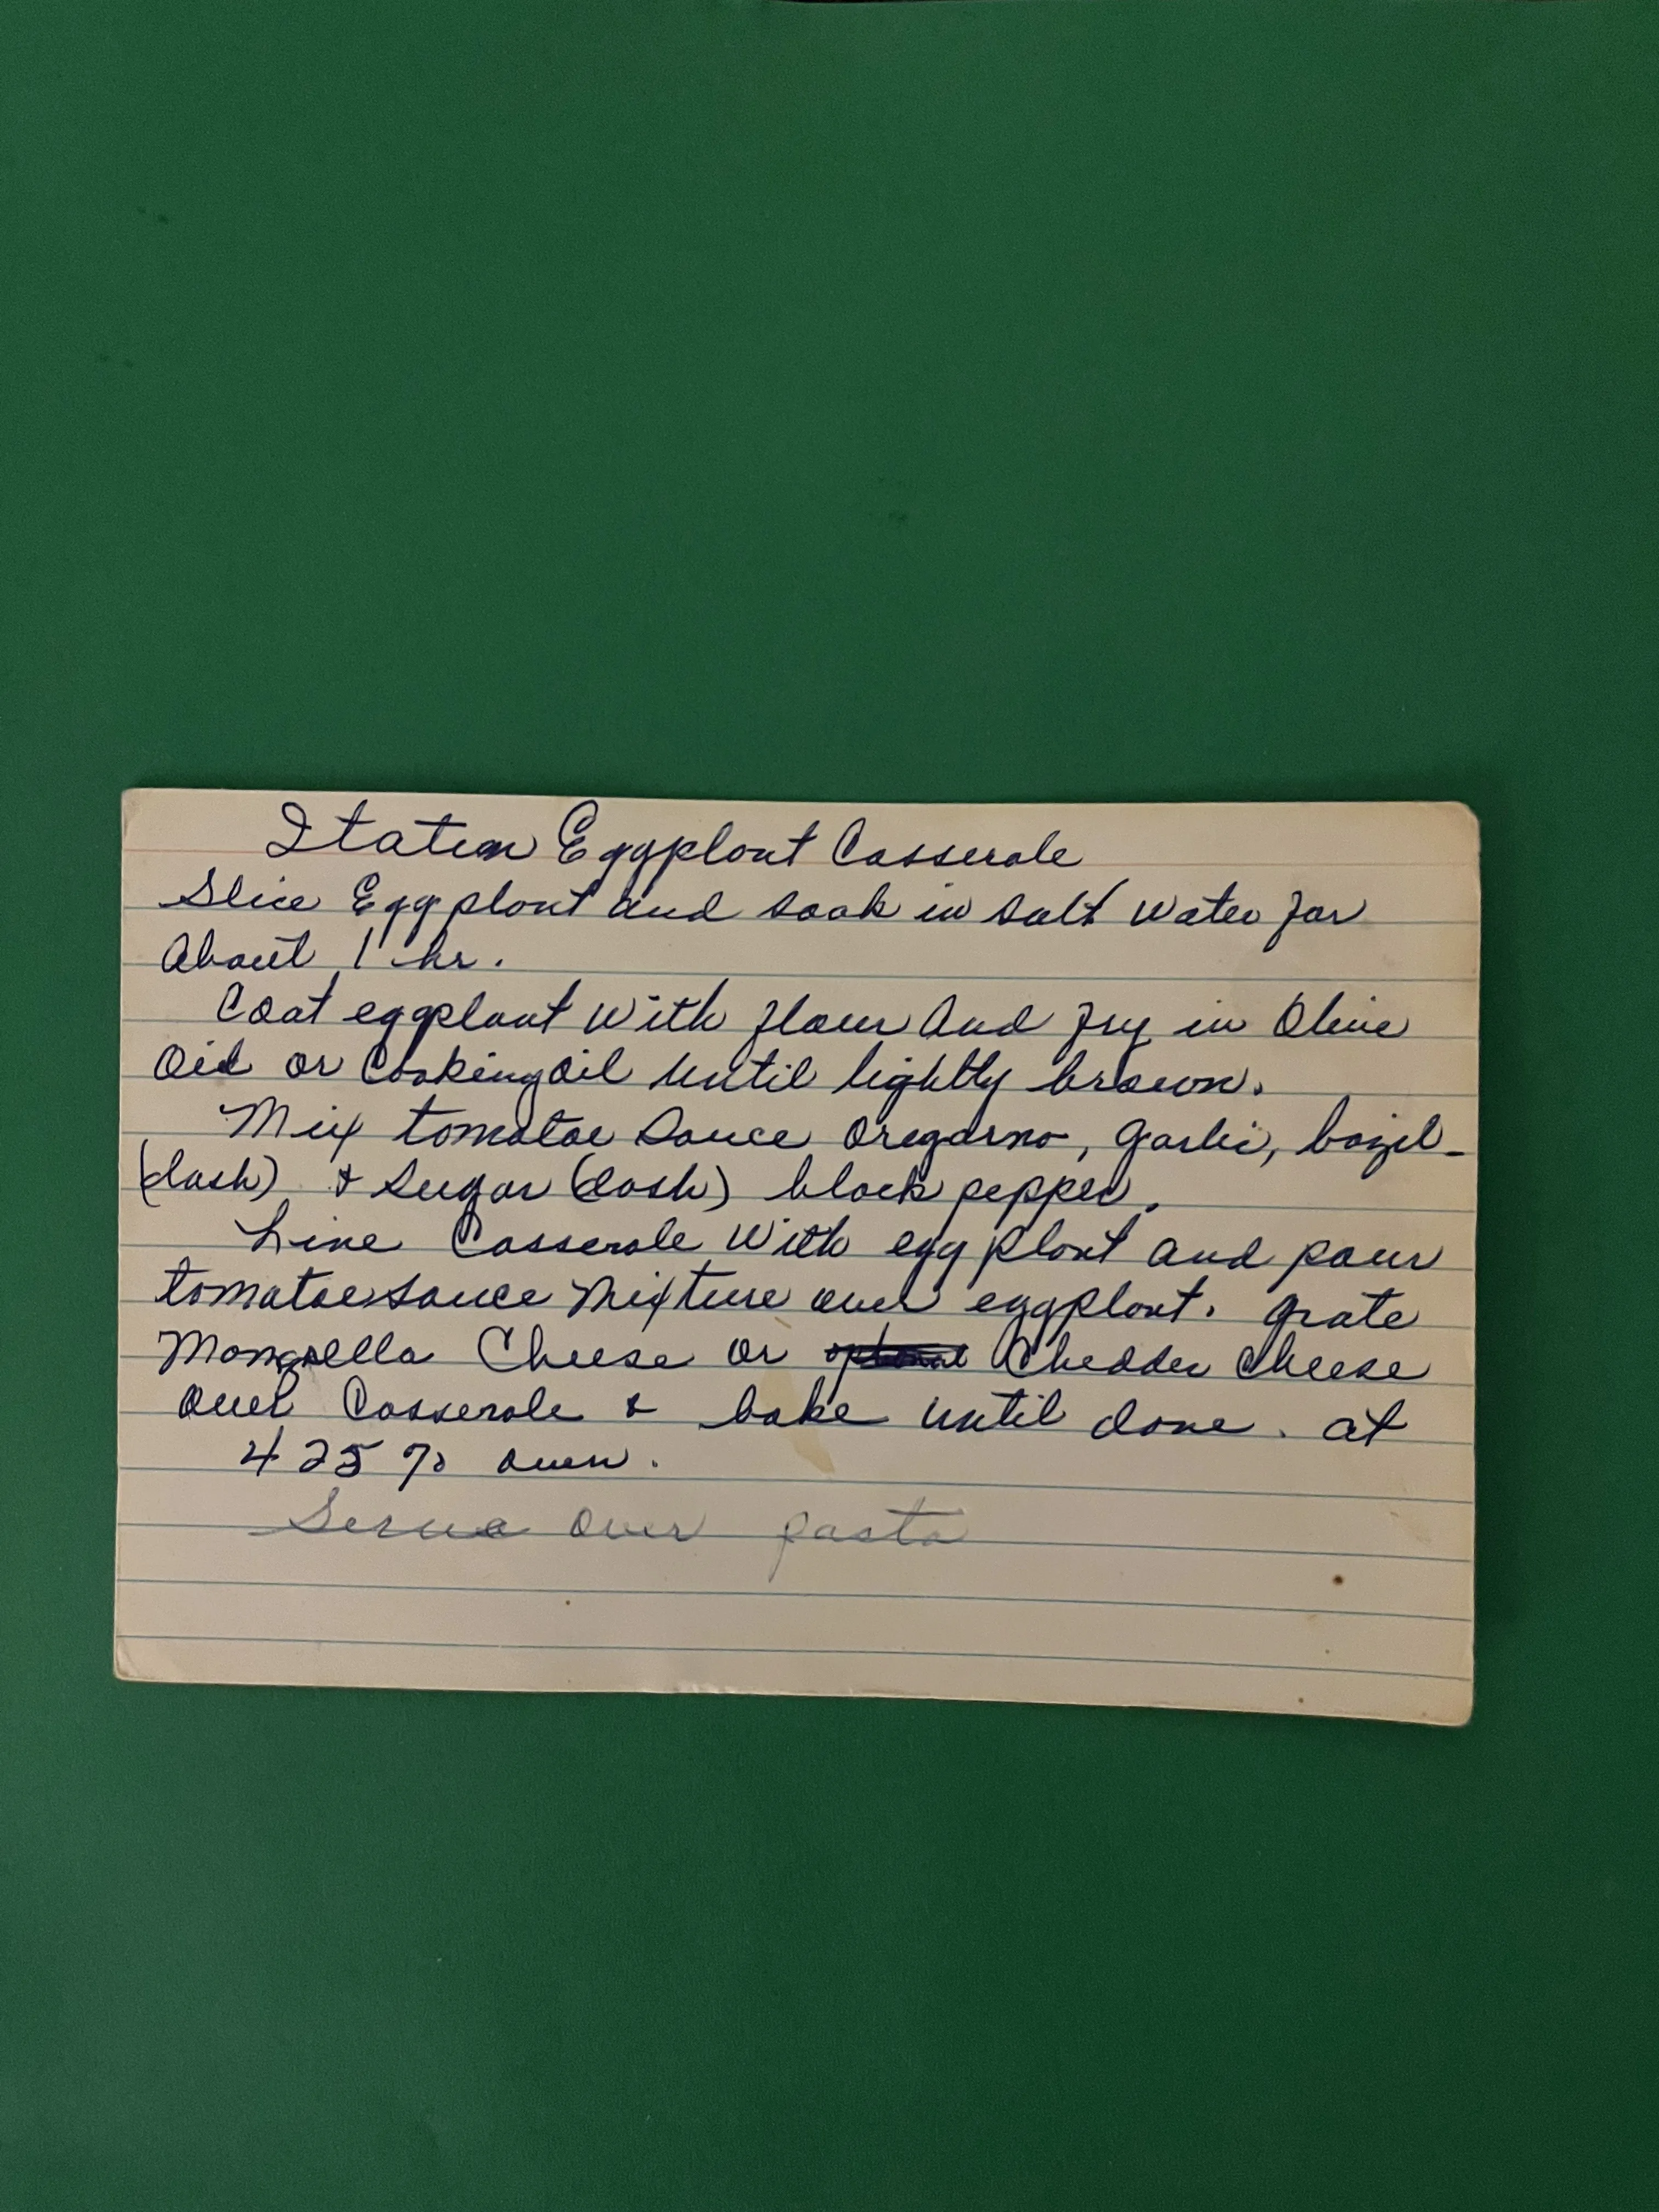 Italien Eggplant Casserole
Slice Eggplant and soak in salt water for
About 1 hr.
Coat eggplant with flour And fry in Olive
Oil or Cooking Oil until lightly brown.
Mix tomatoe sauce oregarno, garlic, bazil-
(dash) & sugar (dash) black pepper.
Line Casserole with eggplant and pour
tomatoe sauce mixture over eggplant. grate
Monzrella Cheese or Chedder Cheese
over Casserole & bake until done. at
425 % oven.
Serve over pasta